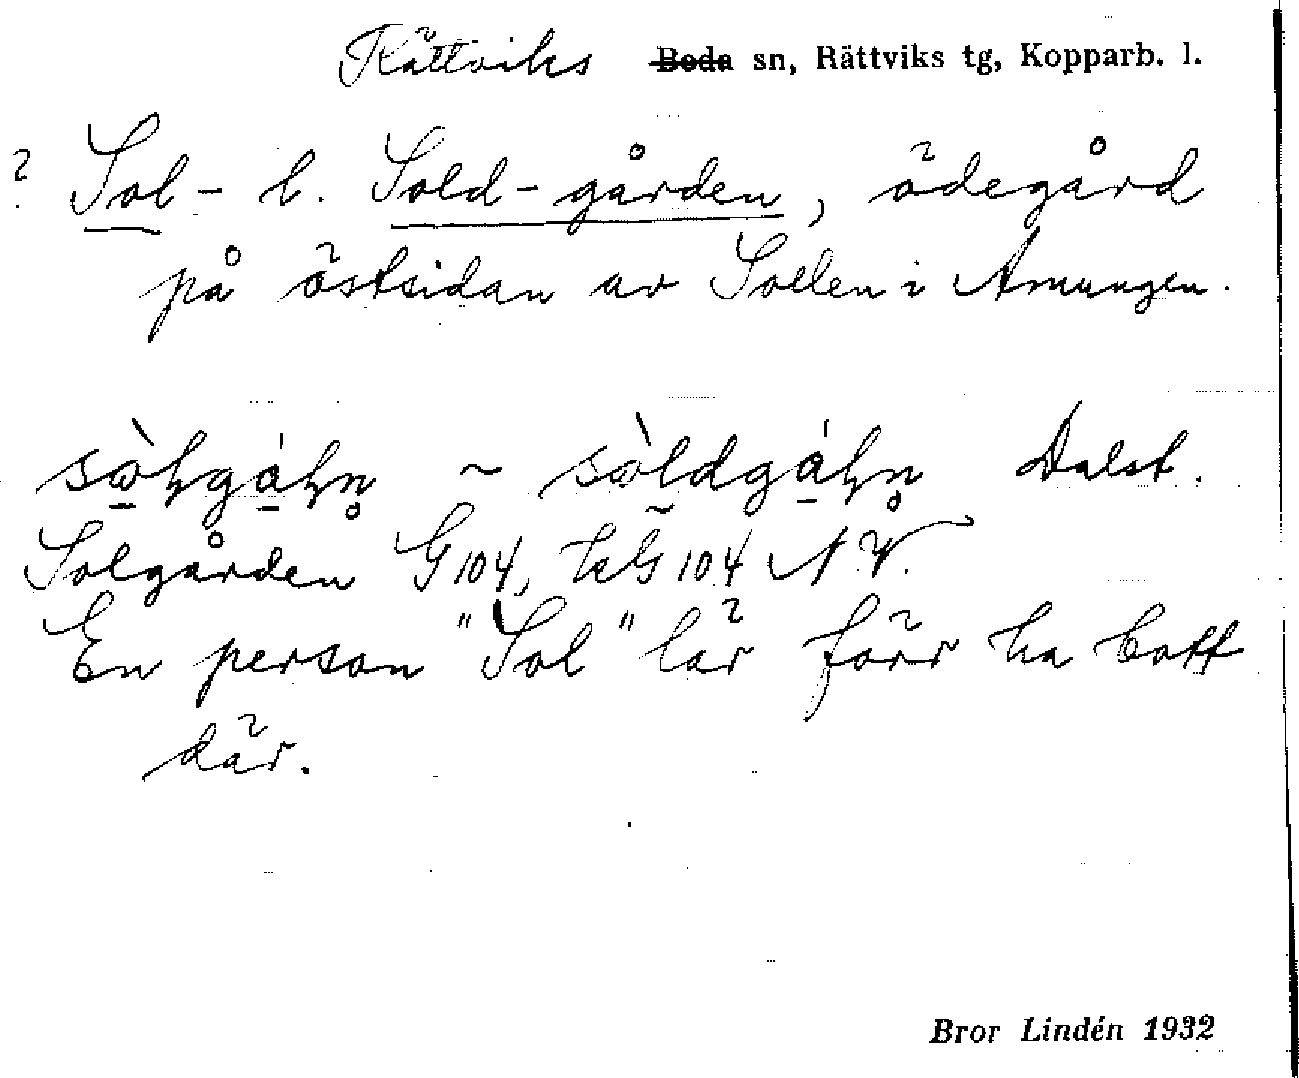 Rättviks Boda sn, Rättviks tg, Kopparb. l.
? Sol- l. Sold-gården, ödegård
på östsidan av Sollen i Amungen.
~ Dalst.
Solgården G 104, 104 N.V.
En person "Sol" lär förr ha bott
där.
Bror Lindén 1932